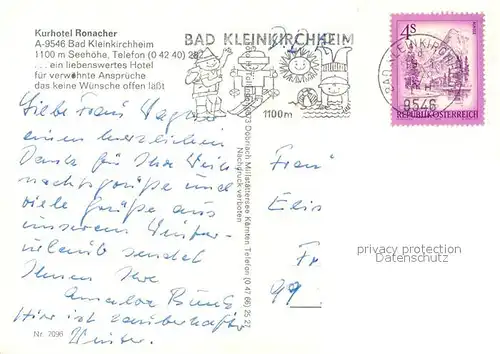 Kurhotel Ronacher
A-9546 Bad Kleinkirchheim
1100 m Seehöhe, Telefon (0 42 40) 282
... ein liebenswertes Hotel
für verwöhnte Ansprüche
das keine Wünsche offen läßt
BAD KLEINKIRCHHEIM
1100m
4S
BAD KLEINKIRCH
9546
REPUBLIK ÖSTERREICH
Liebe Frau
einen herzlichen
Dank für Ihre Weih
nachtsgrüße und
viele Grüße aus
unserem Winter-
urlaub sendet
Ihnen Ihre
Hier ist zauberhafter
Winter.
Nr. 7096
9873 Döbriach Millstättersee Kärnten Telefon (0 47 66) 25 27
Nachdruck verboten
Frau
Elis
Fr
99
privacy protection
Datenschutz